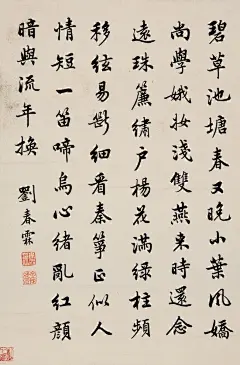 碧草池塘春又晚小葉風嬌
尚學娥妝淺雙燕來時還念
遠珠簾繡戶楊花滿綠柱頻
移絃易斷細看秦箏正似人
情短一笛啼烏心緒亂紅顏
暗與流年換 劉春霖